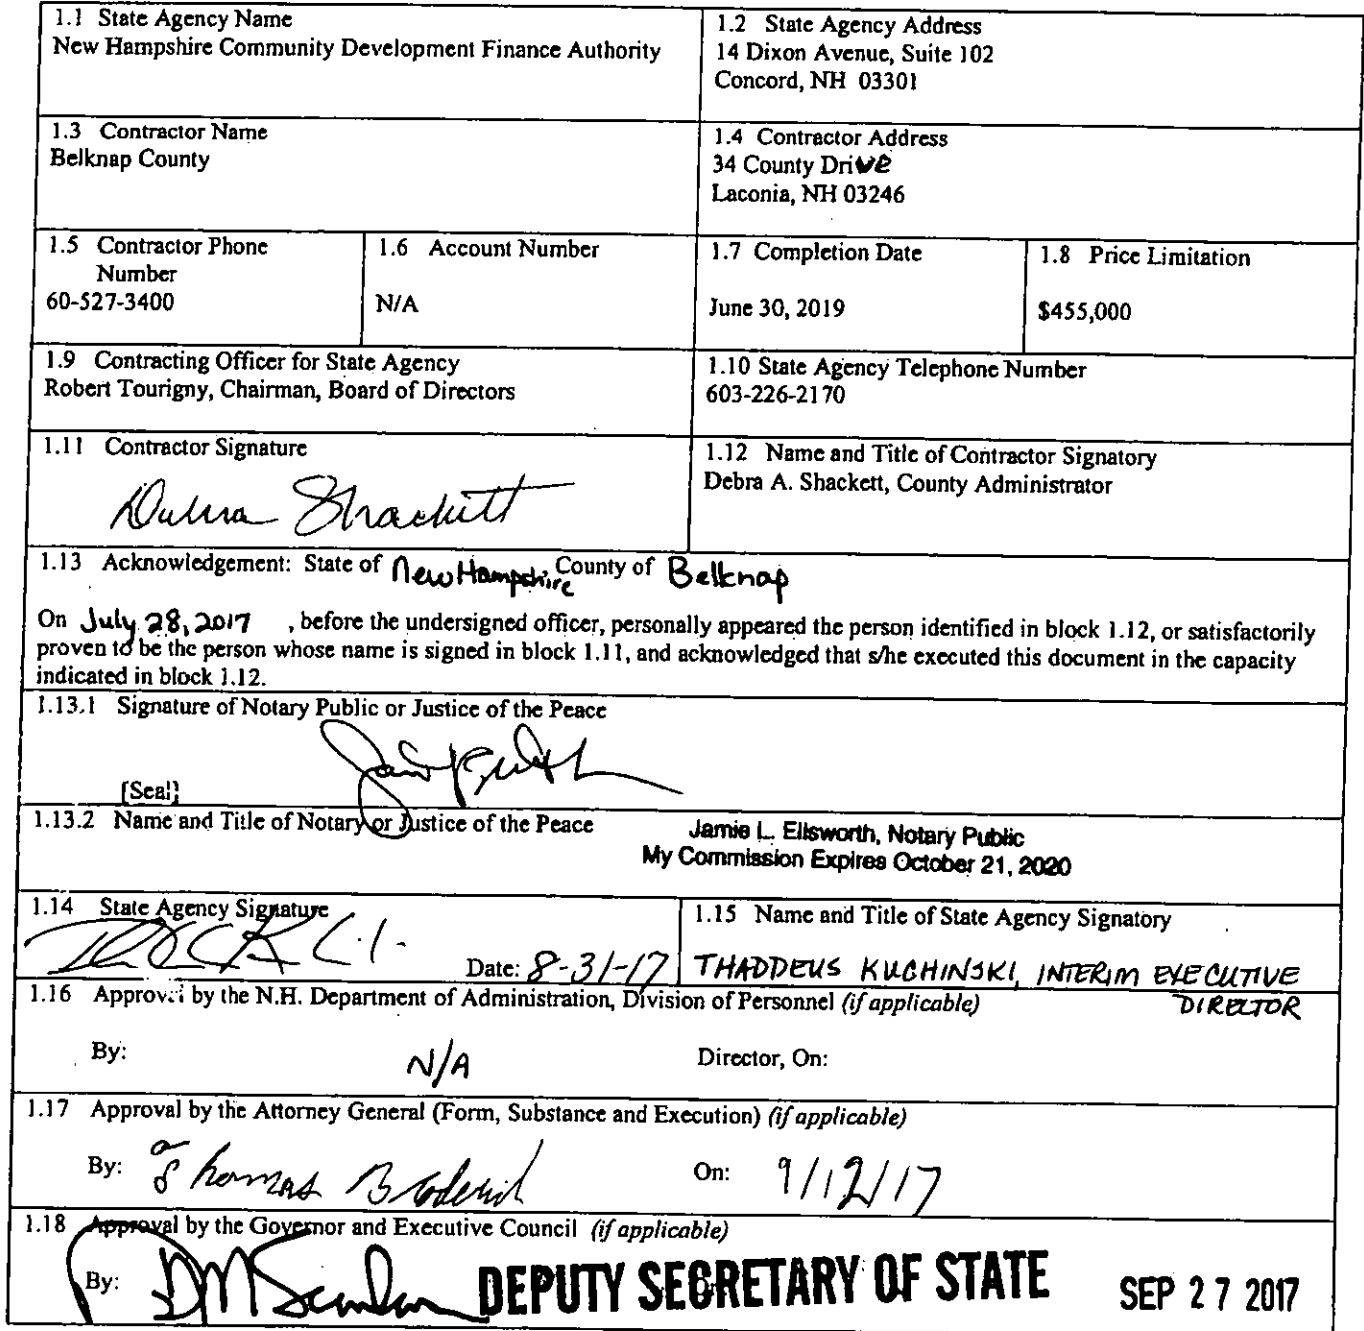 1.1 State Agency Name
New Hampshire Community Development Finance Authority
1.2 State Agency Address
14 Dixon Avenue, Suite 102
Concord, NH 03301
1.3 Contractor Name
Belknap County
1.4 Contractor Address
34 County Drive
Laconia, NH 03246
1.5 Contractor Phone
Number
60-527-3400
1.6 Account Number
N/A
1.7 Completion Date
June 30, 2019
1.8 Price Limitation
$455,000
1.9 Contracting Officer for State Agency
Robert Tourigny, Chairman, Board of Directors
1.10 State Agency Telephone Number
603-226-2170
1.11 Contractor Signature
Debra Shackett
1.12 Name and Title of Contractor Signatory
Debra A. Shackett, County Administrator
1.13 Acknowledgement: State of New Hampshire, County of Belknap
On July 28, 2017 , before the undersigned officer, personally appeared the person identified in block 1.12, or satisfactorily
proven to be the person whose name is signed in block 1.11, and acknowledged that s/he executed this document in the capacity
indicated in block 1.12.
1.13.1 Signature of Notary Public or Justice of the Peace
[Seal]
1.13.2 Name and Title of Notary or Justice of the Peace
Jamie L. Ellsworth, Notary Public
My Commission Expires October 21, 2020
1.14 State Agency Signature
Date: 8-31-17
1.15 Name and Title of State Agency Signatory
THADDEUS KUCHINSKI, INTERIM EXECUTIVE
DIRECTOR
1.16 Approval by the N.H. Department of Administration, Division of Personnel (if applicable)
By: N/A Director, On:
1.17 Approval by the Attorney General (Form, Substance and Execution) (if applicable)
By: Thomas Broderick On: 9/12/17
1.18 Approval by the Governor and Executive Council (if applicable)
By: DEPUTY SECRETARY OF STATE SEP 27 2017